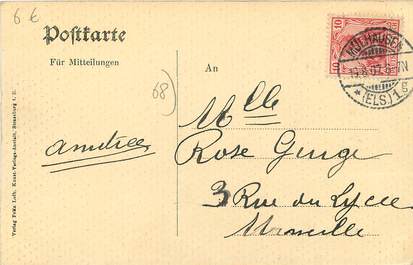 6 €
Postkarte
Für Mitteilungen
An
MÜLHAUSEN
(ELS.) 1.
10 10
68)
Mlle
Rose
3 Rue du Lycée
Verlag Fritz Loeb, Kunst-Verlags-Anstalt, Strassburg i. E.